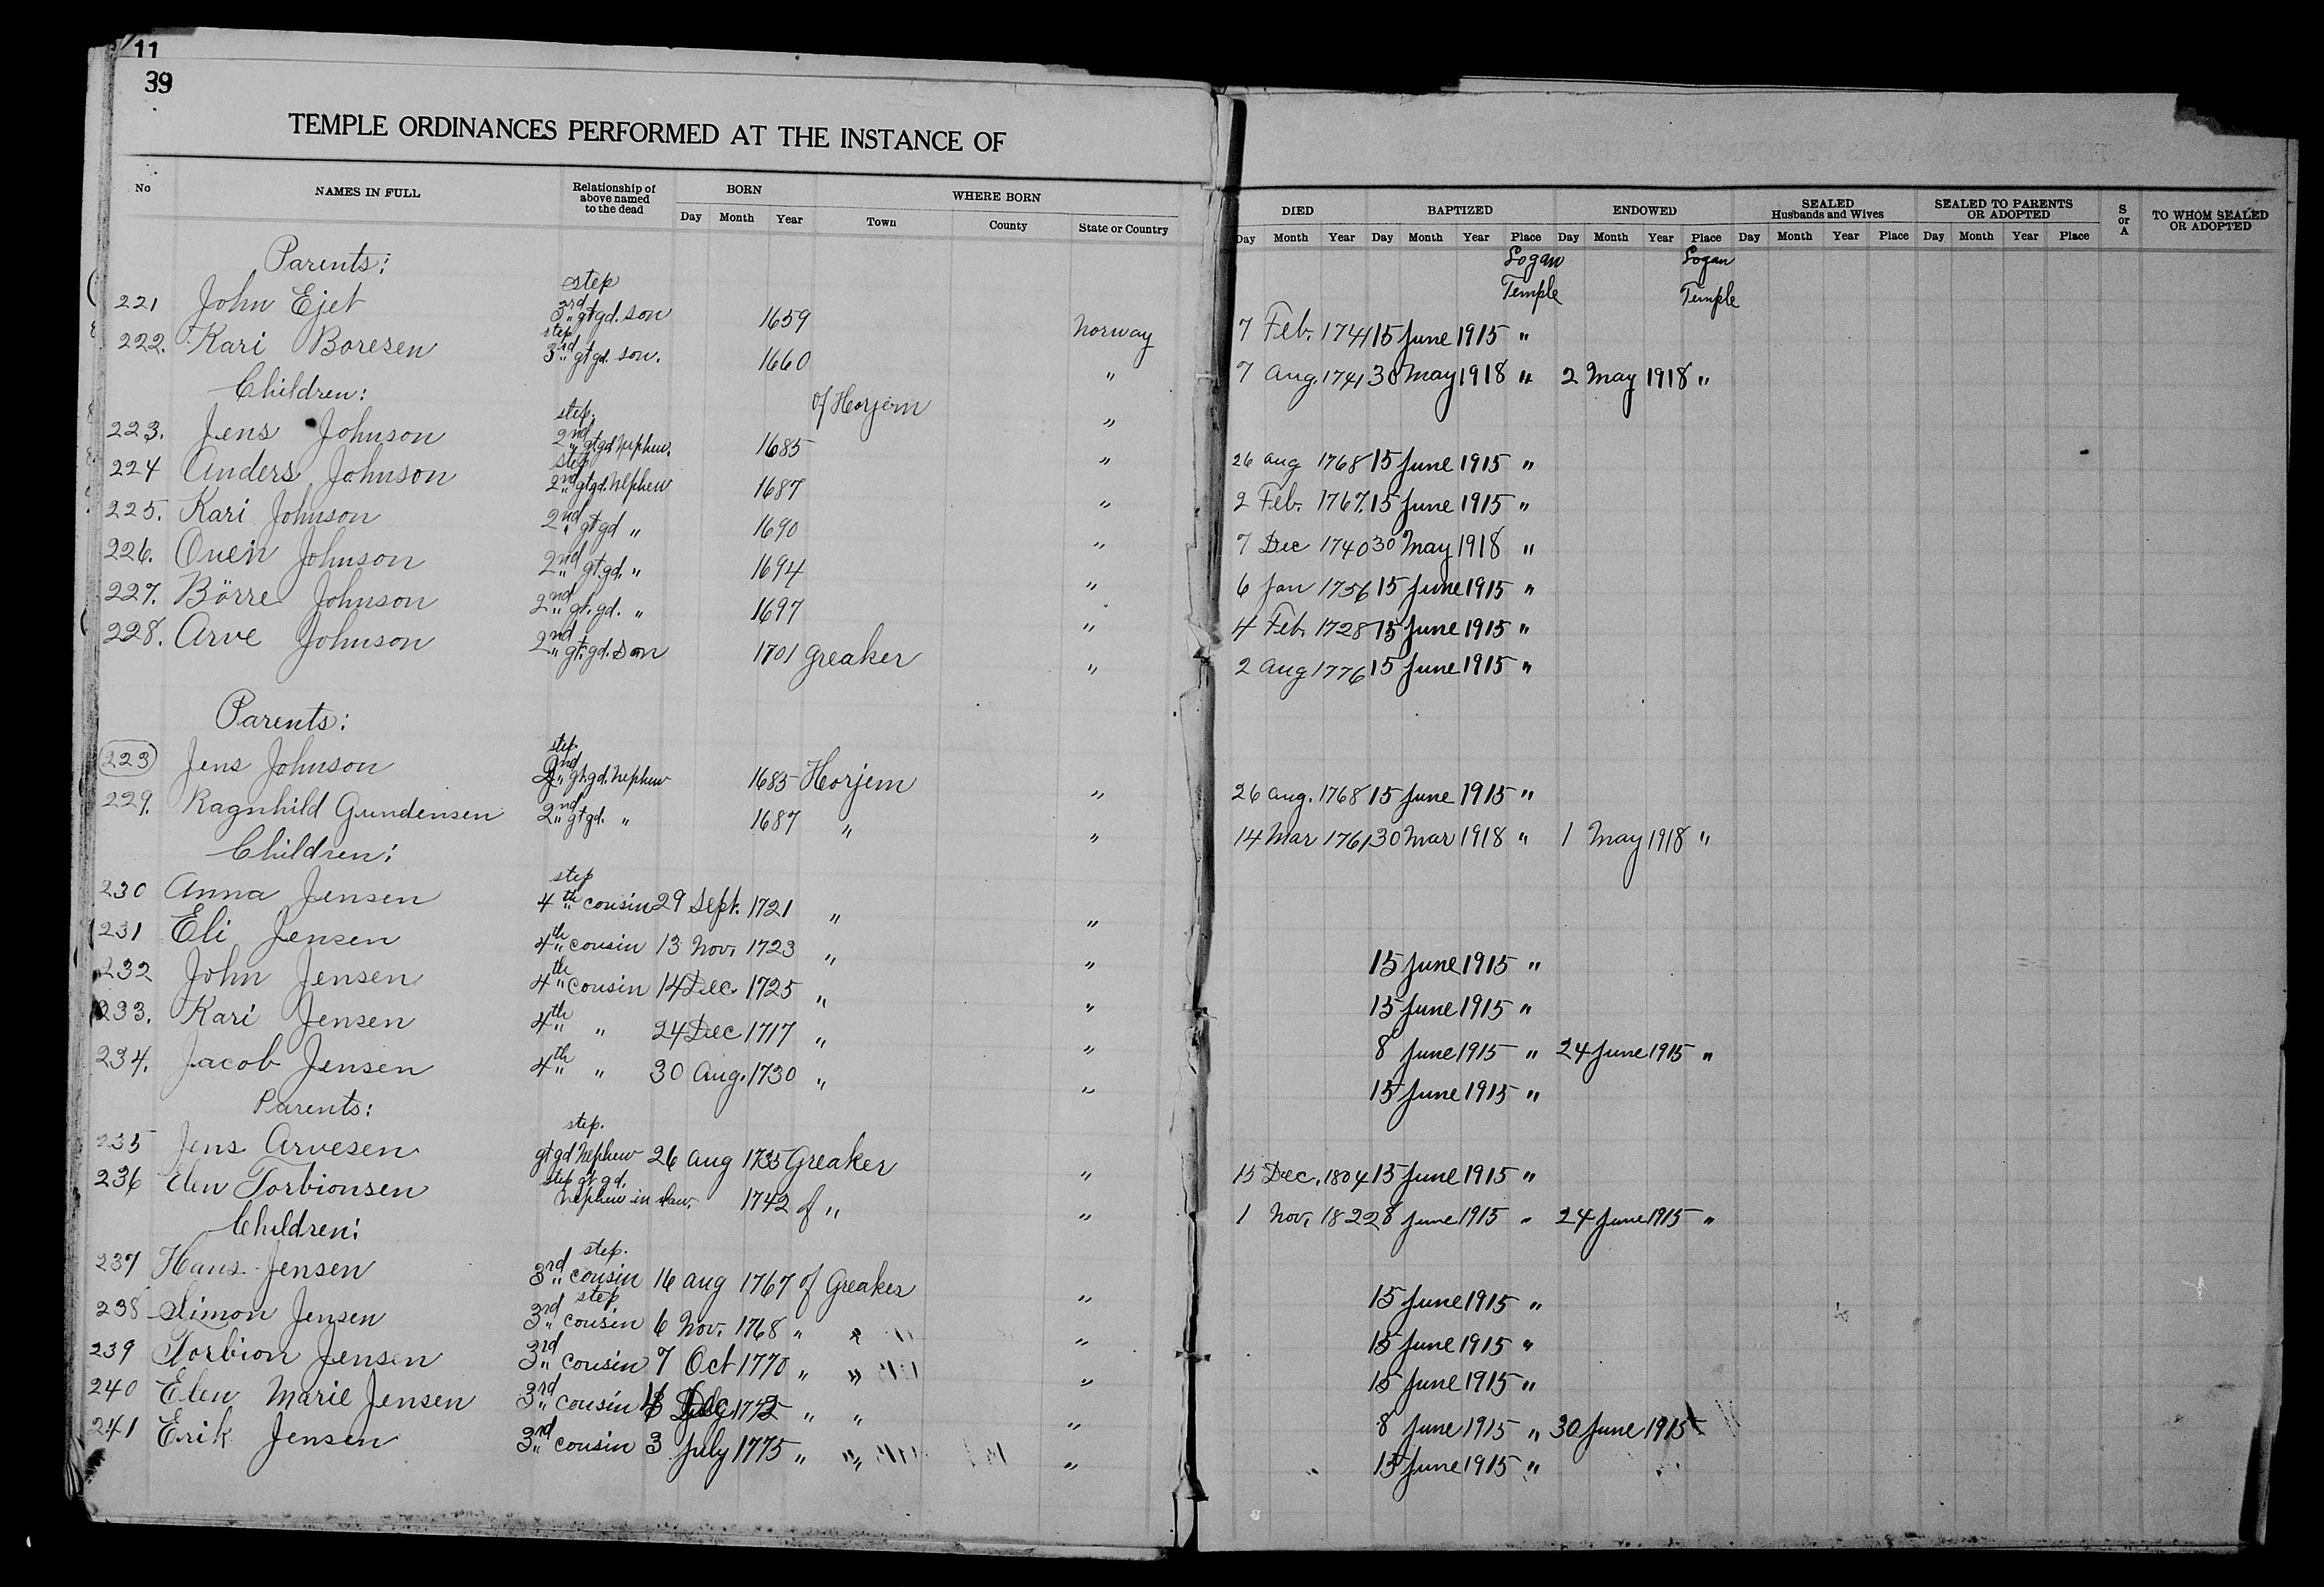 11
39
TEMPLE ORDINANCES PERFORMED AT THE INSTANCE OF
No NAMES IN FULL Relationship of above named to the dead BORN Day Month Year WHERE BORN Town County State or Country DIED Day Month Year BAPTIZED Day Month Year Place ENDOWED Day Month Year Place SEALED Husbands and Wives Day Month Year Place SEALED TO PARENTS OR ADOPTED Day Month Year Place S or A TO WHOM SEALED OR ADOPTED
Parents: Logan Temple Logan Temple
221 John Ejet step 3rd gt gd. son 1659 Norway 7 Feb. 1741 15 June 1915 "
222. Kari Boresen step 3rd gt gd. son. 1660 " 7 Aug. 1741 30 May 1918 " 2 May 1918 "
Children: of Horjem "
223. Jens Johnson step. 2nd gt gd nephew. 1685 " 26 Aug 1768 15 June 1915 "
224 Anders Johnson step 2nd gt gd. nephew 1687 " 2 Feb. 1767. 15 June 1915 "
225. Kari Johnson 2nd gt gd " 1690 " 7 Dec 1740 30 May 1918 "
226. Ouen Johnson 2nd gt gd. " 1694 " 6 Jan 1756 15 June 1915 "
227. Börre Johnson 2nd gt. gd. " 1697 " 4 Feb. 1728 15 June 1915 "
228. Arve Johnson 2nd gt. gd. son 1701 Greaker " 2 Aug 1776 15 June 1915 "
Parents:
223 Jens Johnson step. 2nd gt. gd. nephew 1685 Horjem " 26 Aug. 1768 15 June 1915 "
229. Ragnhild Gundensen 2nd gt gd. " 1687 " " 14 Mar 1761 30 Mar 1918 " 1 May 1918 "
Children:
230 Anna Jensen step 4th cousin 29 Sept. 1721 " "
231 Eli Jensen 4th cousin 13 Nov. 1723 " " 15 June 1915 "
232 John Jensen 4th cousin 14 Dec. 1725 " " 15 June 1915 "
233. Kari Jensen 4th " 24 Dec 1717 " " 8 June 1915 " 24 June 1915 "
234. Jacob Jensen 4th " 30 Aug. 1730 " " 15 June 1915 "
Parents:
235 Jens Arvesen step. gt gd nephew 26 Aug 1735 Greaker " 15 Dec. 1804 15 June 1915 "
236 Elen Torbionsen step gt gd. nephew in law. 1742 of " " 1 Nov. 1822 8 June 1915 " 24 June 1915 "
Children:
237 Hans Jensen step. 3rd cousin 16 Aug 1767 of Greaker " 15 June 1915 "
238 Simon Jensen step 3rd cousin 6 Nov. 1768 " " " 15 June 1915 "
239 Torbion Jensen 3rd cousin 7 Oct 1770 " " " 15 June 1915 "
240 Elen Marie Jensen 3rd cousin " " " 8 June 1915 " 30 June 1915
241 Erik Jensen 3rd cousin 3 July 1775 " " " 15 June 1915 "